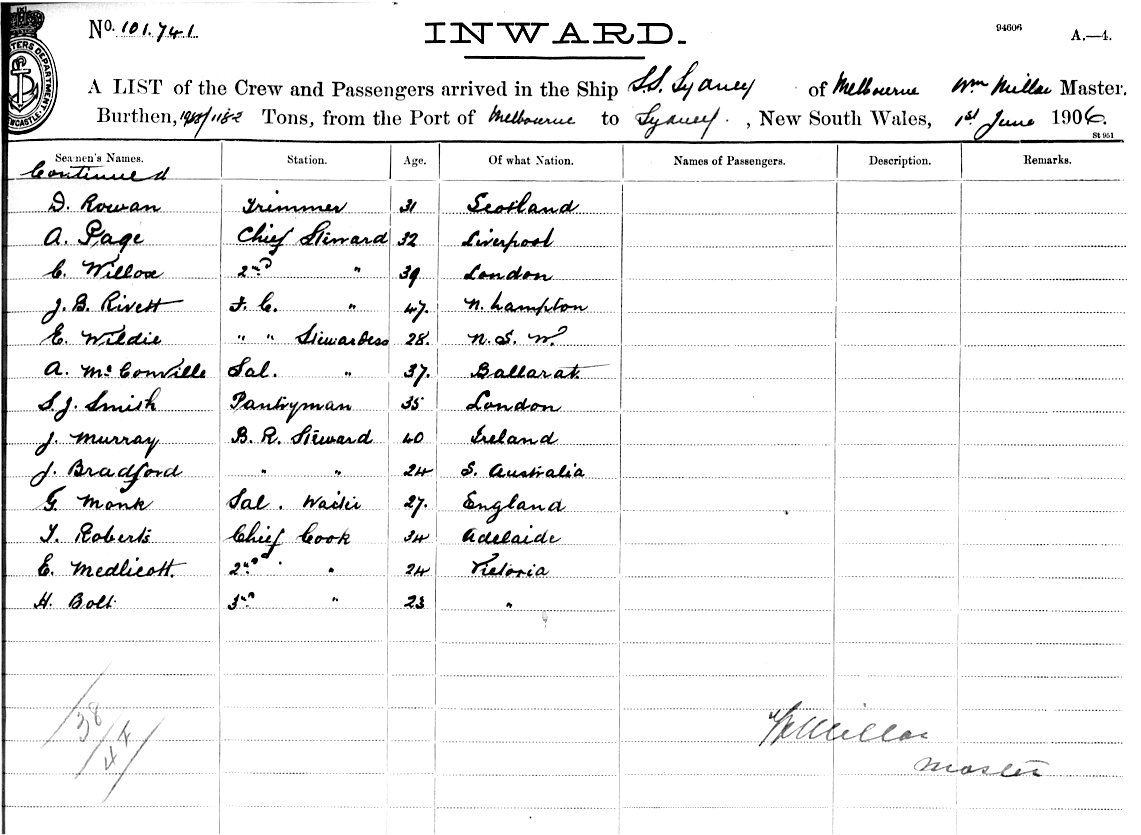 No. 101.741 INWARD. 94606 A.—4.
A LIST of the Crew and Passengers arrived in the Ship S.S. Sydney of Melbourne Wm Millar Master.
Burthen, Tons, from the Port of Melbourne to Sydney. , New South Wales, 1st June 1906.
St 951
Seamen's Names. Station. Age. Of what Nation. Names of Passengers. Description. Remarks.
Continued
D. Rowan Trimmer 31 Scotland
A. Page Chief Steward 32 Liverpool
C. Willox 2nd " 39 London
J. B. Rivett F. C. " 47. N. hampton
E. Wildie " " Stewardess 28. N. S. W.
A. McConville Sal. " 37. Ballarat.
S. J. Smish Pantryman 35 London
J. Murray B. R. Steward 40 Ireland
J. Bradford " " 24 S. Australia
G. Monk Sal. Waiter 27. England
T. Roberts Chief Cook 34 Adelaide
E. Medlicott. 2nd " 24 Victoria
H. Bolt 3rd " 23 "
38
Wm Millar
Master